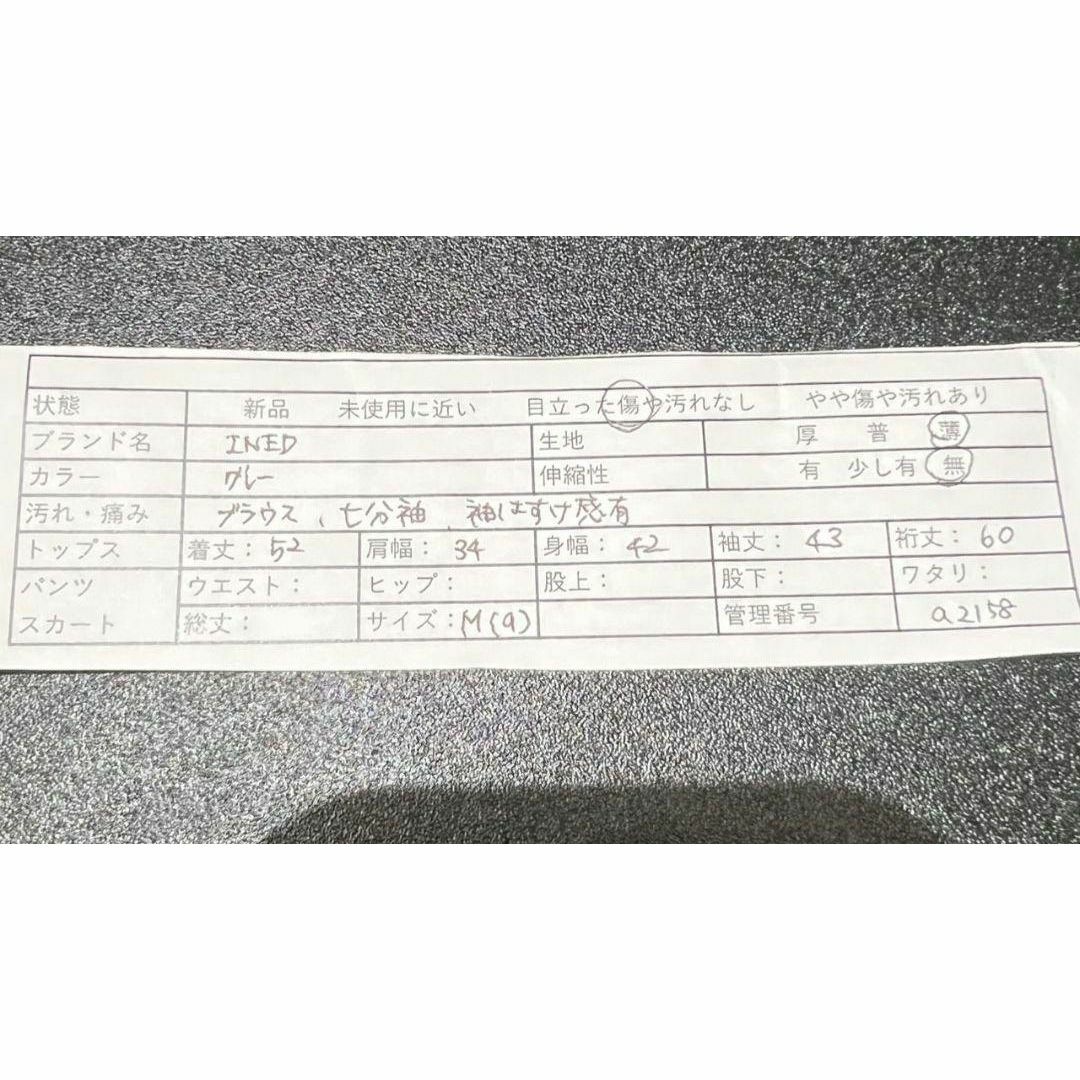 状態 新品 未使用に近い 目立った傷や汚れなし やや傷や汚れあり
ブランド名 INED 生地 厚 普 薄
カラー グレー 伸縮性 有 少し有 無
汚れ・痛み ブラウス、七分袖、袖はすけ感有
トップス 着丈:52 肩幅:34 身幅:42 袖丈:43 裄丈:60
パンツ ウエスト: ヒップ: 股上: 股下: ワタリ:
スカート 総丈: サイズ:M(9) 管理番号 a2158